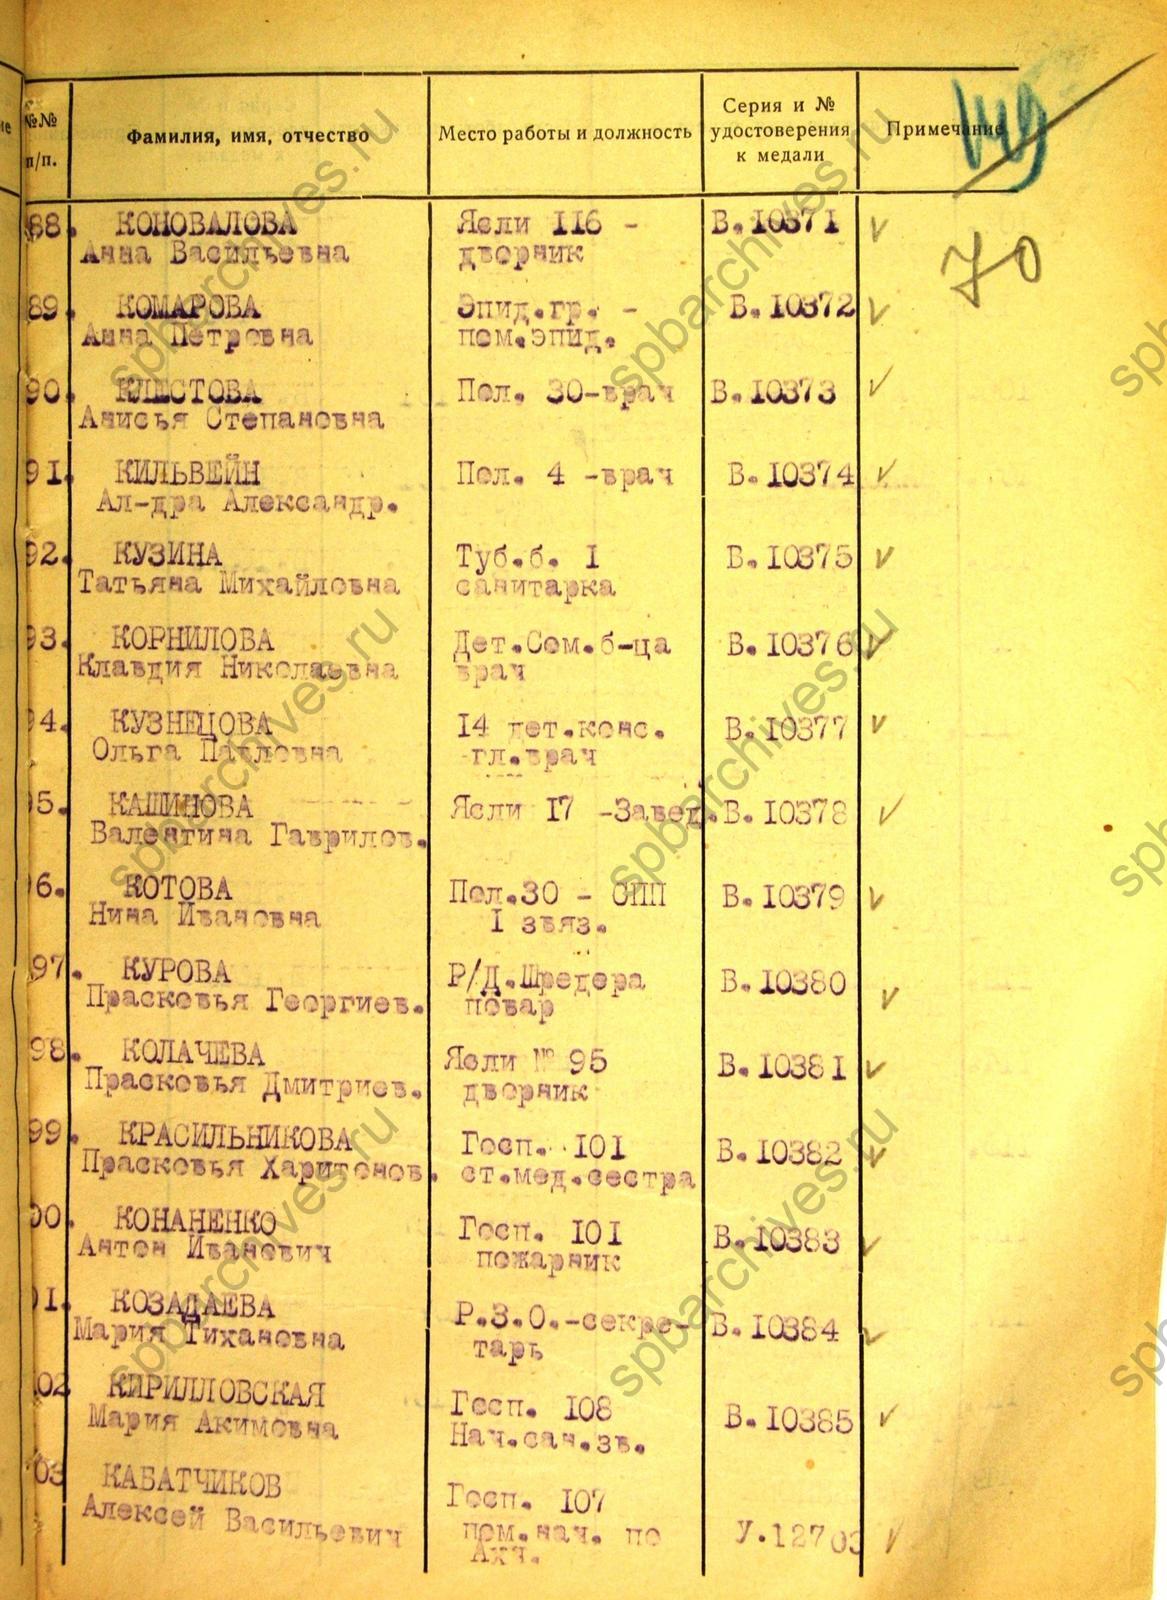 149
70
№№ п/п. Фамилия, имя, отчество Место работы и должность Серия и № удостоверения к медали Примечание
88. КОНОВАЛОВА Ясли 116 - В.10371
Анна Васильевна дворник
89. КОМАРОВА Эпид.гр. - В.10372
Анна Петровна пом.эпид.
90. КЛЕСТОВА Пол. 30-врач В.10373
Анисья Степановна
91. КИЛЬВЕЙН Пол. 4 -врач В.10374
Ал-дра Александр.
92. КУЗИНА Туб.б. I В.10375
Татьяна Михайловна санитарка
93. КОРНИЛОВА Дет.Сом.б-ца В.10376
Клавдия Николаевна врач
94. КУЗНЕЦОВА 14 дет.конс. В.10377
Ольга Павловна гл.врач
95. КАШИНОВА Ясли 17 -Завед. В.10378
Валентина Гаврилов.
96. КОТОВА Пол.30 - СПП В.10379
Нина Ивановна I звяз.
97. КУРОВА Р/Д.Шредера В.10380
Прасковья Георгиев. повар
98. КОЛАЧЕВА Ясли № 95 В.10381
Прасковья Дмитриев. дворник
99. КРАСИЛЬНИКОВА Госп. 101 В.10382
Прасковья Харитонов. ст.мед.сестра
00. КОНАНЕНКО Госп. 101 В.10383
Антон Иванович пожарник
01. КОЗАДАЕВА Р.З.О.-секре- В.10384
Мария Тихановна тарь
02 КИРИЛЛОВСКАЯ Госп. 108 В.10385
Мария Акимовна Нач.сан.зв.
03 КАБАТЧИКОВ Госп. 107
Алексей Васильевич пом.нач. по У.12703
Ахч.
spbarchives.ru
spbarchives.ru
spbarchives.ru
spbarchives.ru
spbarchives.ru
spbarchives.ru